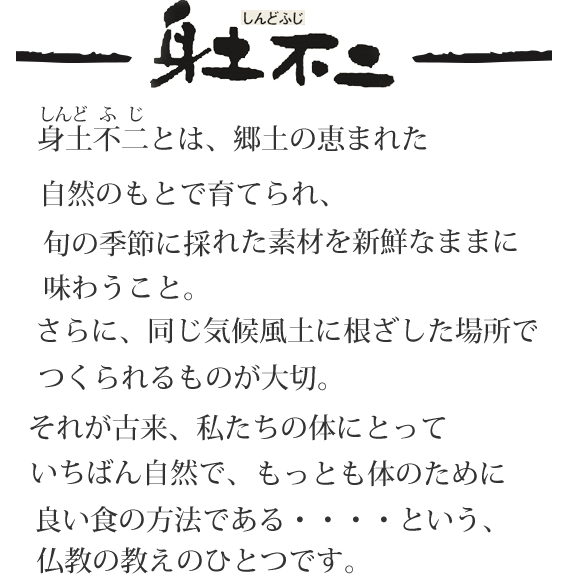 しんどふじ
身土不二
しんどふじ
身土不二とは、郷土の恵まれた
自然のもとで育てられ、
旬の季節に採れた素材を新鮮なままに
味わうこと。
さらに、同じ気候風土に根ざした場所で
つくられるものが大切。
それが古来、私たちの体にとって
いちばん自然で、もっとも体のために
良い食の方法である・・・・という、
仏教の教えのひとつです。